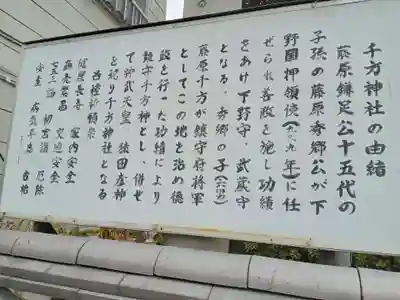 千方神社の由緒
藤原鎌足公十五代の
子孫の藤原秀郷公が下
野国押領使(九一九年)に任
ぜられ善政を施し功績
をあげ下野守、武蔵守
となる。秀郷の子(六男)
藤原千方が鎮守府将軍
としてこの地を治め徳
政を行った功績により
鎮守千方神とし、併せ
て神武天皇 猿田彦神
を祀り千方神社となる
各種祈願祭
延命長寿 家内安全
商売繁昌 交通安全
七五三詣 初宮詣 厄除
安産 病気平癒 合格